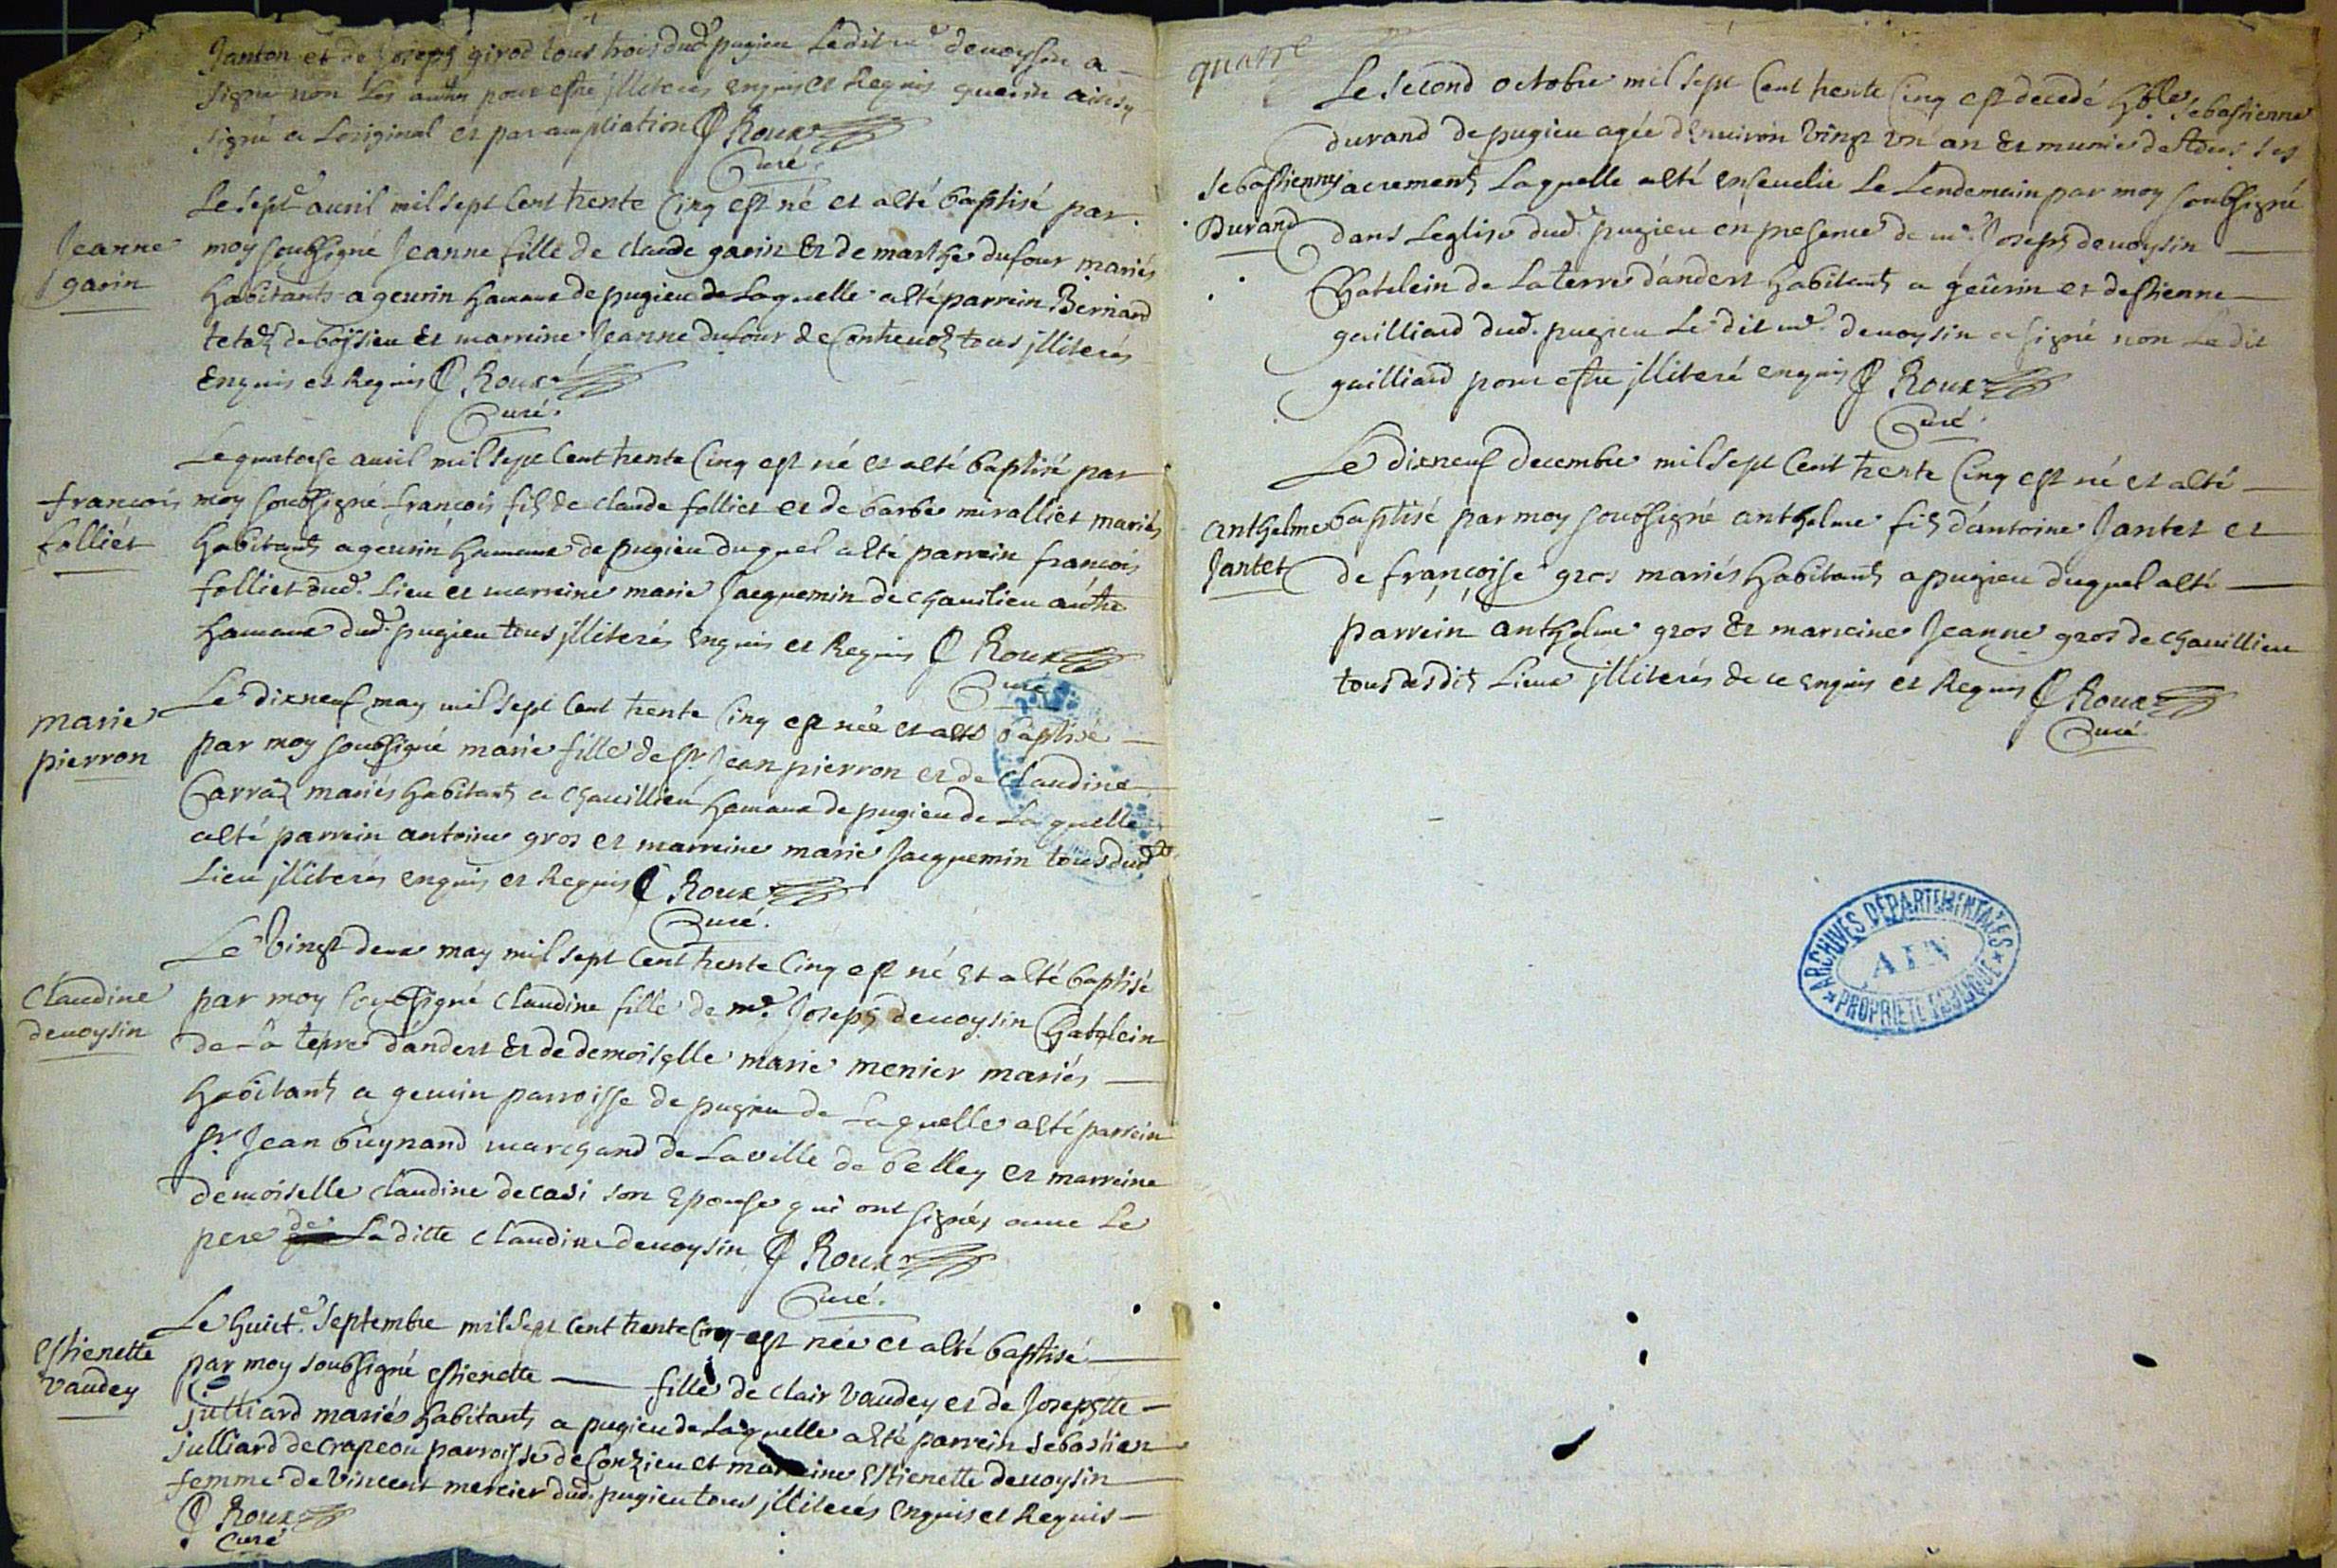 Janton et de Joseph girod tous trois dud. pugieu Ledit mr. devoysin a
signé non Les autres pour estre jlliterés enquis et Requis
signé a Loriginal et par ampliation Roux
Curé.
Jeanne
garin
Le sept. avril mil sept Cent trente Cinq est né et a été baptisé par
moy soubsigné Jeanne fille de claude garin Et de marthe dufour mariés
habitants a geurin hameau de pugieu de Laquelle a été parrein Bernard
de Et marreine Jeanne dufour de tous jlliterés
Enquis et Requis Roux
Curé.
françois
folliet
Le quatorse avril mil sept Cent trente Cinq est né et a été baptisé par
moy soubsigné françois fils de claude folliet et de barbe miralliet mariés
habitants a geurin hameau de pugieu duquel a été parrein françois
folliet dud. Lieu et marreine marie Jacquemin de chavilieu autre
hameau dud. pugieu tous jlliterés Enquis et Requis Roux
Curé
marie
pierron
Le dixneuf may mil sept Cent trente Cinq est née et a été baptisé
par moy soubsigné marie fille de sr. Jean pierron et de claudine
Carraz mariés habitants a chavillieu hameau de pugieu de Laquelle
a été parrein antoine gros et marreine marie Jacquemin tous dud.
Lieu jlliterés enquis et Requis Roux
Curé.
Claudine
devoysin
Le Vingt deux may mil sept Cent trente Cinq est né Et a été baptisé
par moy soubsigné Claudine fille de mr. Joseph devoysin Chatelein
de La terre d'andert Et de demoiselle marie menier mariés
habitants a geurin parroisse de pugieu de Laquelle a été parrein
sr. Jean buynand marchand de La ville de belley et marreine
demoiselle claudine decasi son Epouse qui ont signés avec Le
pere de La ditte claudine devoysin Roux
Curé.
Estienette
Vaudey
Le huict. septembre mil sept Cent trente Cinq est née et a été baptisé
par moy soubsigné estienette fille de clair Vaudey et de Josephtte
julliard mariés habitants a pugieu de Laquelle a été parrein sebastien
julliard de crapeou parroisse de Conzieu et marreine Estienette devoysin
femme de Vincent mercier dud. pugieu tous jlliterés Enquis et Requis
Roux
Curé
quatre
sebastienne
Durand
Le second octobre mil sept Cent trente Cinq est decedé hble. sebastienne
durand de pugieu agée d'Environ Vingt un an Et munie de tous ses
sacrements Laquelle a été ensevelie Le Lendemain par moy soubsigné
dans Leglise dud. pugieu en presence de mr. Joseph devoysin
Chatelein de La terre d'andert habitants a geurin et destienne
gailliard dud. pugieu Le dit mr. devoysin a signé non Le dit
gailliard pour estre jlliteré enquis Roux
Curé.
anthelme
Jantet
Le dixneuf decembre mil sept Cent trente Cinq est né et a été
baptisé par moy soubsigné anthelme fils d'antoine Jantet et
de françoise gros mariés habitants a pugieu duquel a été
parrein anthelme gros Et marreine Jeanne gros de chavillieu
tous desdits Lieux jlliterés de ce enquis et Requis Roux
Curé.
ARCHIVES DÉPARTEMENTALES
AIN
PROPRIÉTÉ PUBLIQUE